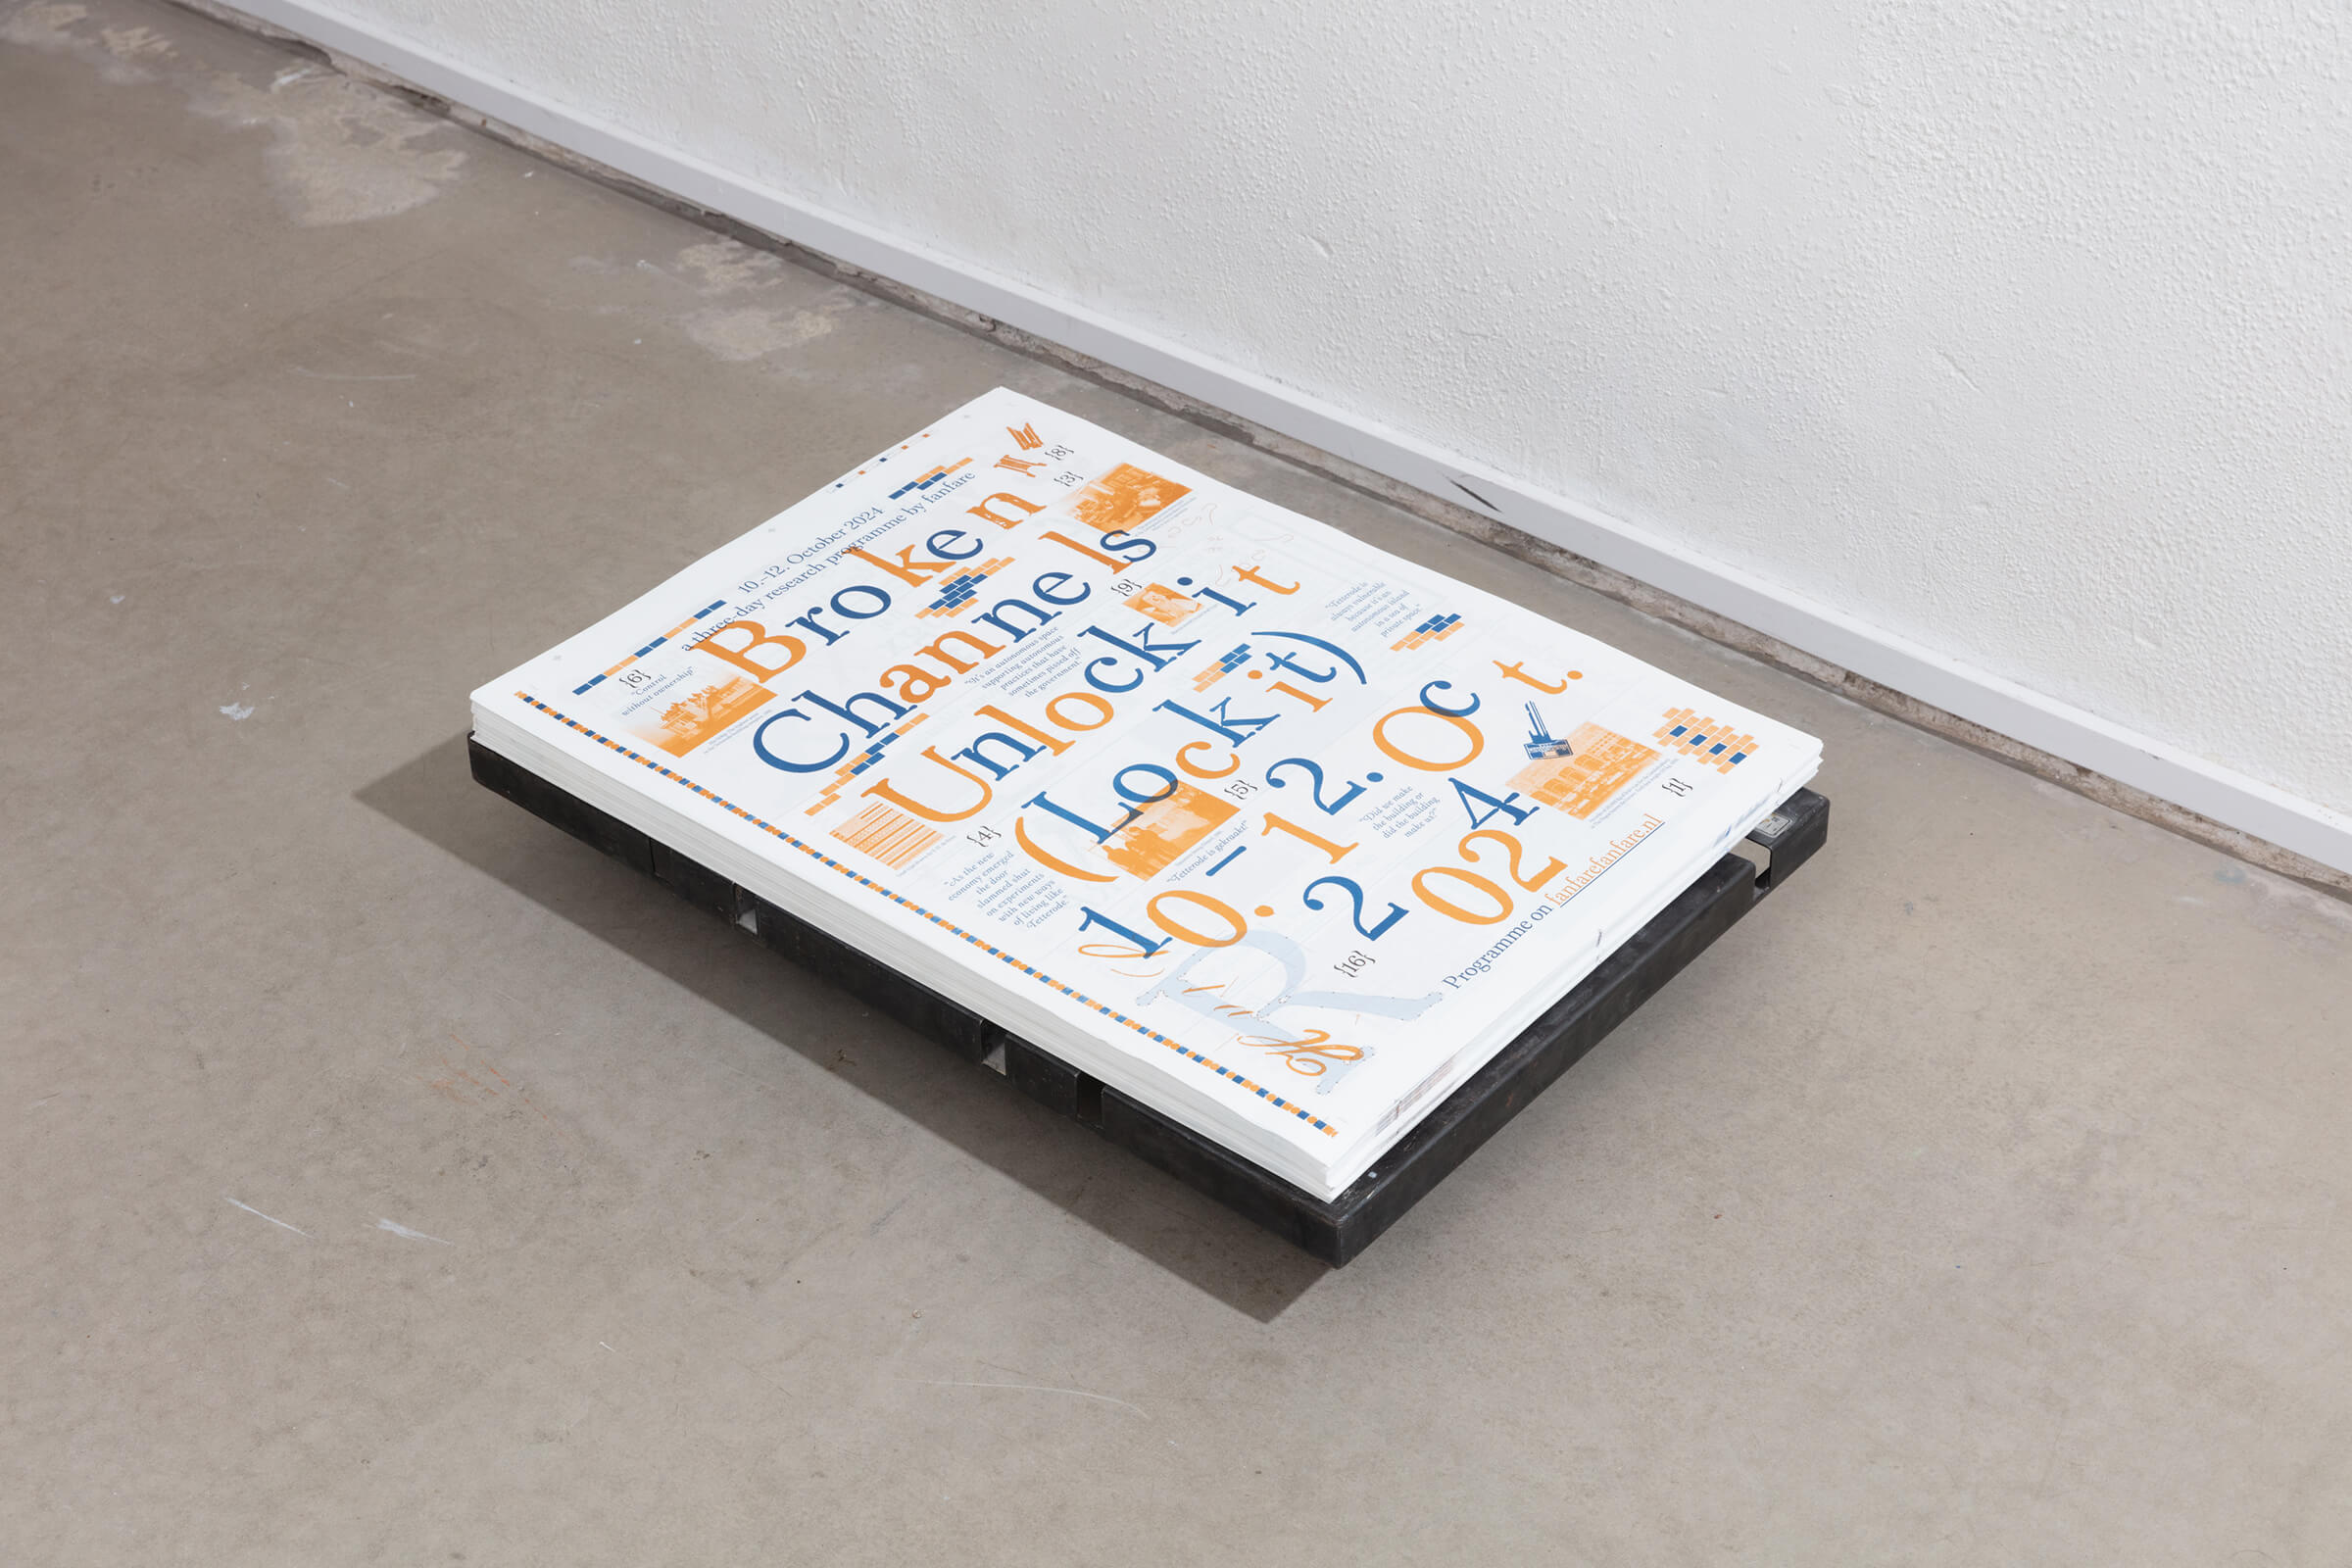 10.–12. October 2024
a three-day research programme by fanfare
{8}
{3}
Broken
Channels
{6}
"Control
without ownership"
{9}
"It's an autonomous space
supporting autonomous
practices that have
sometimes pissed off
the government"
Unlock it
"Tetterode is
always vulnerable
because it's an
autonomous island
in a sea of
private space."
(Lock it)
{4}
"As the new
economy emerged
the door
slammed shut
on experiments
with new ways
of living like
Tetterode"
{5}
"Tetterode is gekraakt!"
10.–12. Oct.
"Did we make
the building or
did the building
make us?"
2024
{1}
R
{16}
Programme on fanfarefanfare.nl